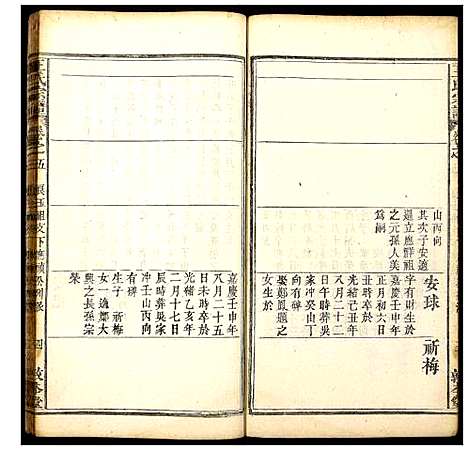 王氏宗譜
山丙向
其次子安遠
還立應鮮祖
之元孫人美
爲嗣
安球 祈梅
字有財生於
嘉慶壬申年
正月初六日
丑時卒於
光緒己丑年
八月二十二
日午時葬吳
家冲癸山丁
向
娶鄭鳳德之
女生於
嘉慶壬申年
八月二十五
日未時卒於
光緒乙亥年
二月十七日
時葬吳家
冲壬山丙向
有碑
生子 祈梅
女一適鄭大
興之長孫宗
榮
王氏宗譜
卷之五